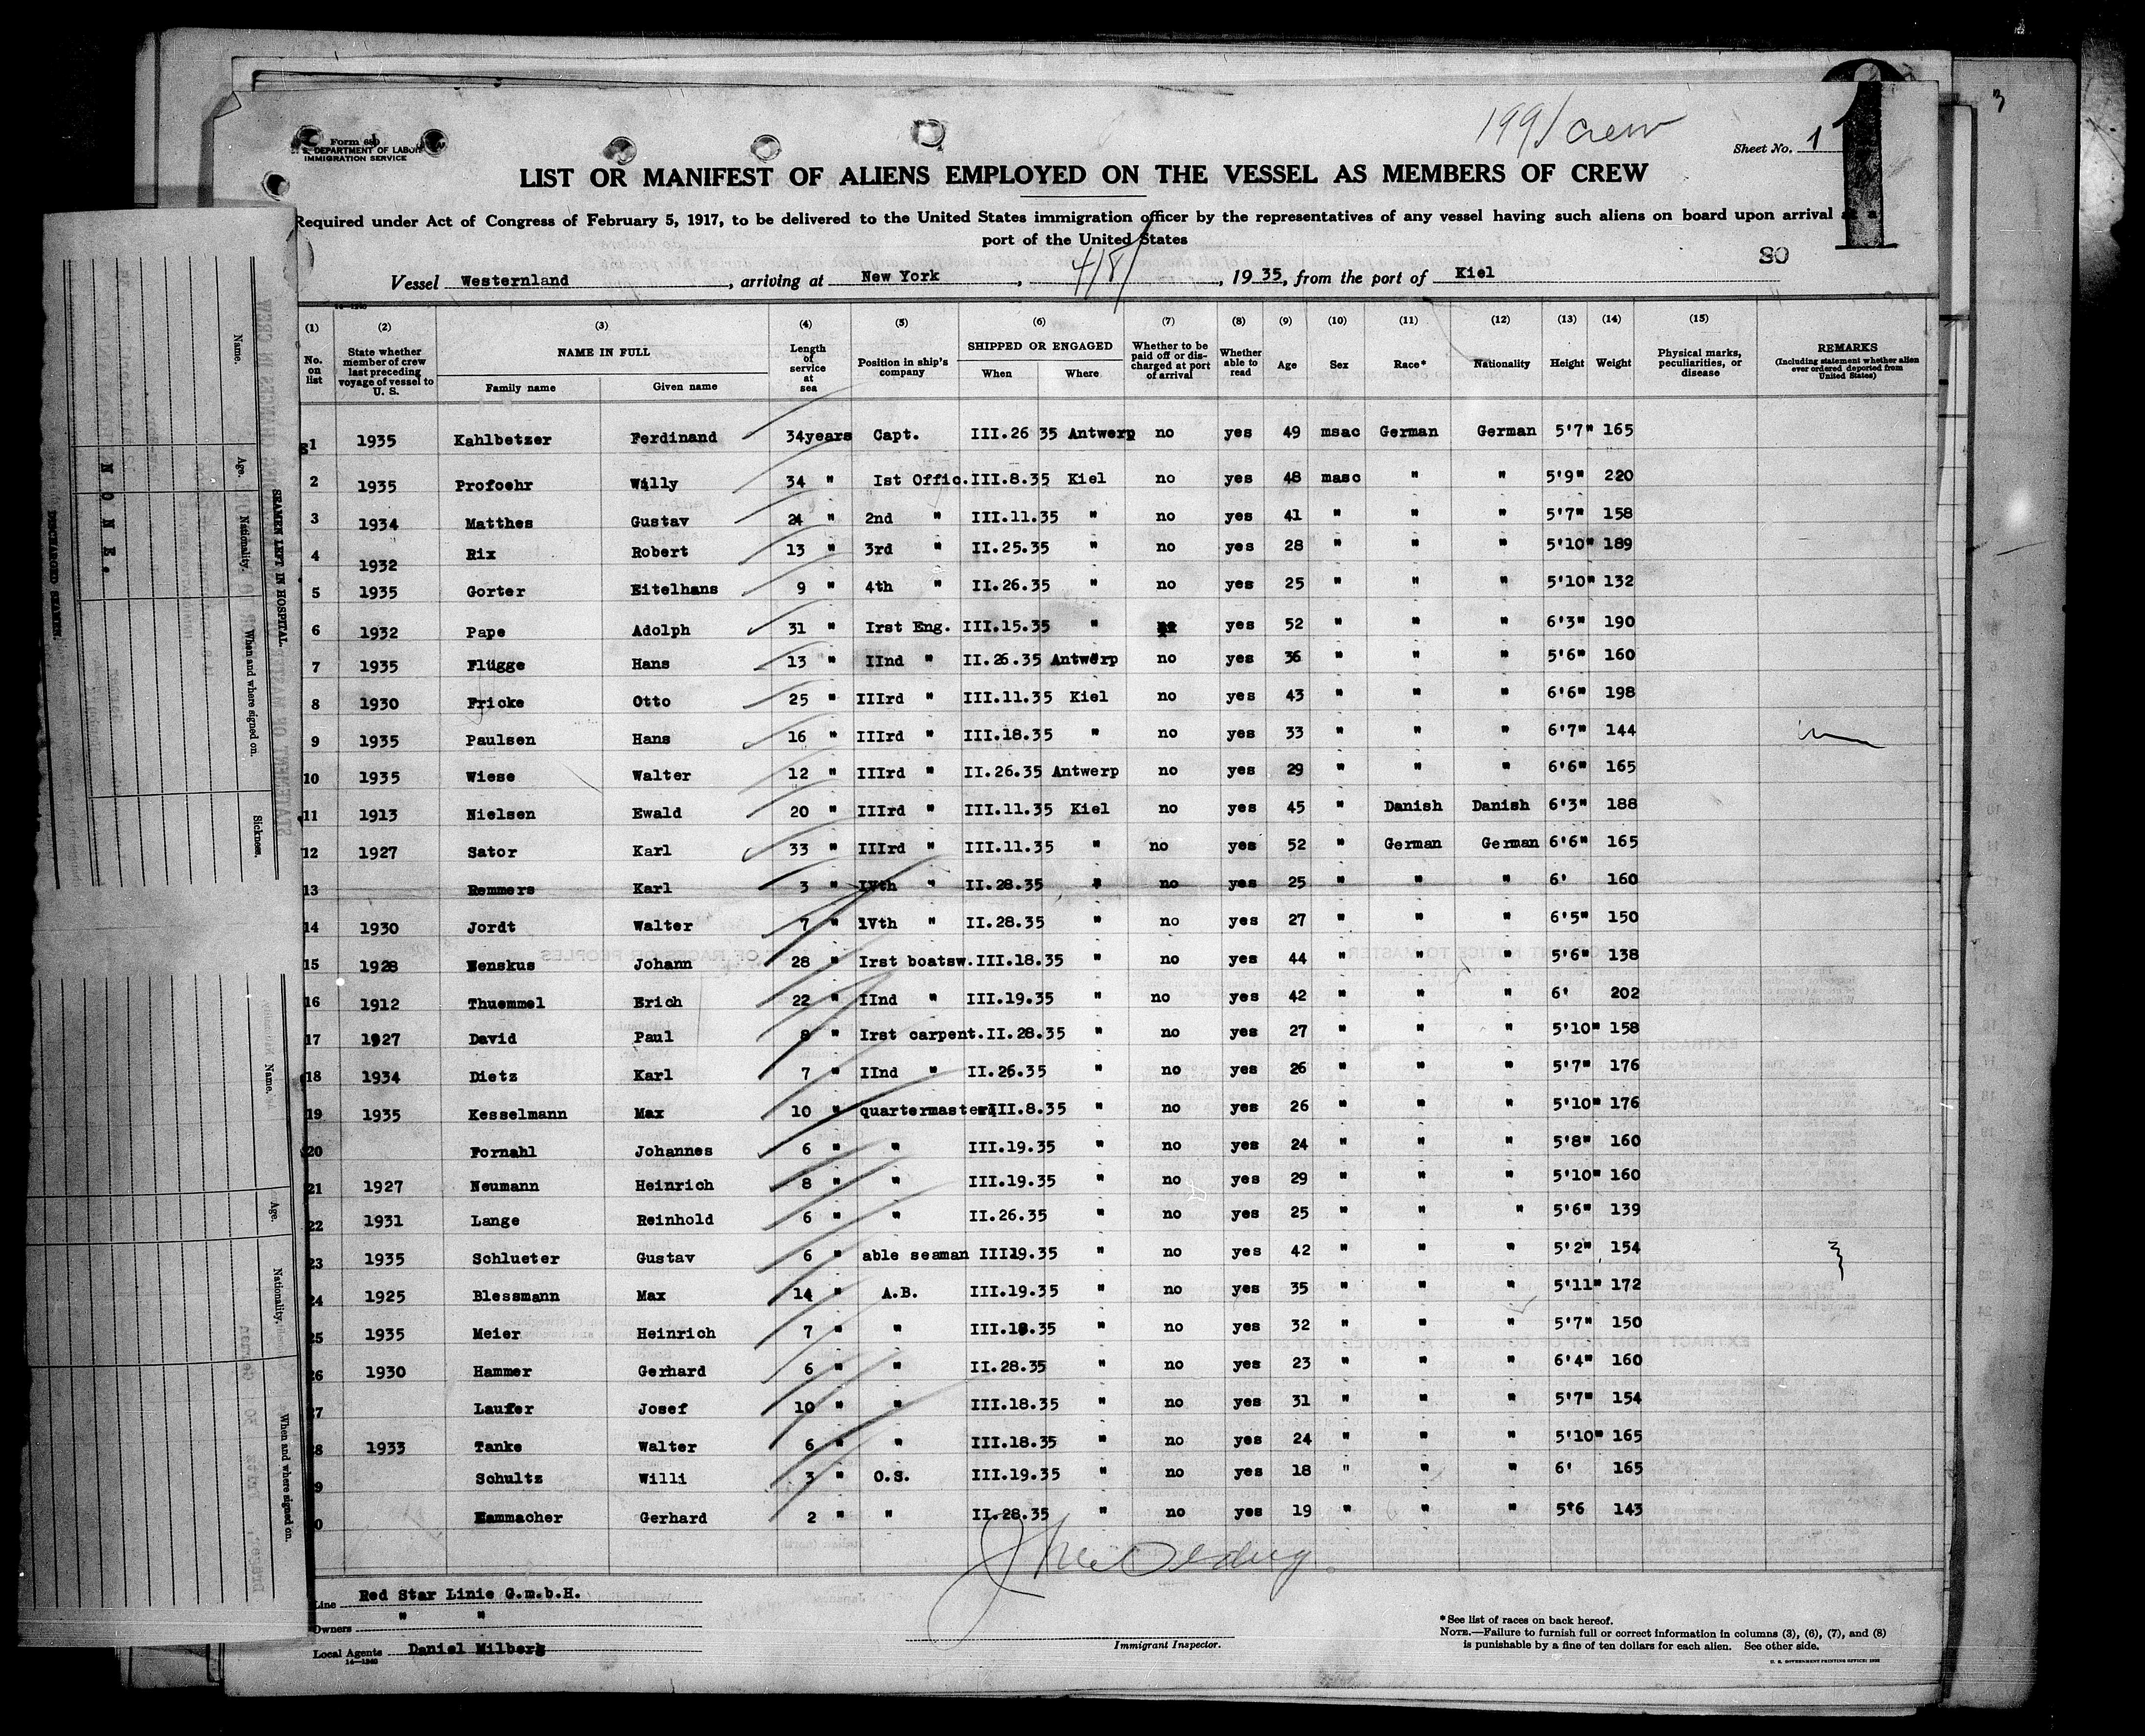 199 / crew
Form 680
U. S. DEPARTMENT OF LABOR
IMMIGRATION SERVICE
Sheet No. 1
1
LIST OR MANIFEST OF ALIENS EMPLOYED ON THE VESSEL AS MEMBERS OF CREW
Required under Act of Congress of February 5, 1917, to be delivered to the United States immigration officer by the representatives of any vessel having such aliens on board upon arrival at a
port of the United States
80
Vessel Westernland, arriving at New York, 4/8/, 1935, from the port of Kiel
(1) (2) (3) (4) (5) (6) (7) (8) (9) (10) (11) (12) (13) (14) (15)
No. on list State whether member of crew last preceding voyage of vessel to U. S. NAME IN FULL Family name Given name Length of service at sea Position in ship's company SHIPPED OR ENGAGED When Where Whether to be paid off or discharged at port of arrival Whether able to read Age Sex Race* Nationality Height Weight Physical marks, peculiarities, or disease REMARKS (Including statement whether alien ever ordered deported from United States)
1 1935 Kahlbetzer Ferdinand 34years Capt. III.26 35 Antwerp no yes 49 msac German German 5'7" 165
2 1935 Profoehr Willy 34 " Ist Offic. III.8.35 Kiel no yes 48 masc " " 5'9" 220
3 1934 Matthes Gustav 24 " 2nd " III.11.35 " no yes 41 " " " 5'7" 158
4 1932 Rix Robert 13 " 3rd " II.25.35 " no yes 28 " " " 5'10" 189
5 1935 Gorter Eitelhans 9 " 4th " II.26.35 " no yes 25 " " " 5'10" 132
6 1932 Pape Adolph 31 " Irst Eng. III.15.35 " no yes 52 " " " 6'3" 190
7 1935 Flügge Hans 13 " IInd " II.26.35 Antwerp no yes 36 " " " 5'6" 160
8 1930 Fricke Otto 25 " IIIrd " III.11.35 Kiel no yes 43 " " " 6'6" 198
9 1935 Paulsen Hans 16 " IIIrd " III.18.35 " no yes 33 " " " 6'7" 144
10 1935 Wiese Walter 12 " IIIrd " II.26.35 Antwerp no yes 29 " " " 6'6" 165
11 1913 Nielsen Ewald 20 " IIIrd " III.11.35 Kiel no yes 45 " Danish Danish 6'3" 188
12 1927 Sator Karl 33 " IIIrd " III.11.35 " no yes 52 " German German 6'6" 165
13 Remmers Karl 3 " IVth " II.28.35 " no yes 25 " " " 6' 160
14 1930 Jordt Walter 7 " IVth " II.28.35 " no yes 27 " " " 6'5" 150
15 1928 Wenskus Johann 28 " Irst boatsw. III.18.35 " no yes 44 " " " 5'6" 138
16 1912 Thuemmel Erich 22 " IInd " III.19.35 " no yes 42 " " " 6' 202
17 1927 David Paul 8 " Irst carpent. II.28.35 " no yes 27 " " " 5'10" 158
18 1934 Dietz Karl 7 " IInd " II.26.35 " no yes 26 " " " 5'7" 176
19 1935 Kesselmann Max 10 " quartermaster III.8.35 " no yes 26 " " " 5'10" 176
20 Fornahl Johannes 6 " " III.19.35 " no yes 24 " " " 5'8" 160
21 1927 Neumann Heinrich 8 " " III.19.35 " no yes 29 " " " 5'10" 160
22 1931 Lange Reinhold 6 " " II.26.35 " no yes 25 " " " 5'6" 139
23 1935 Schlueter Gustav 6 " able seaman III19.35 " no yes 42 " " " 5'2" 154
24 1925 Blessmann Max 14 " A.B. III.19.35 " no yes 35 " " " 5'11" 172
25 1935 Meier Heinrich 7 " " III.18.35 " no yes 32 " " " 5'7" 150
26 1930 Hammer Gerhard 6 " " II.28.35 " no yes 23 " " " 6'4" 160
27 Laufer Josef 10 " " III.18.35 " no yes 31 " " " 5'7" 154
28 1933 Tanke Walter 6 " " III.18.35 " no yes 24 " " " 5'10" 165
9 Schultz Willi 3 " O.S. III.19.35 " no yes 18 " " " 6' 165
0 Hammacher Gerhard 2 " " II.28.35 " no yes 19 " " " 5'6 143
Line Red Star Linie G.m.b.H.
Owners " "
Local Agents Daniel Milberg
14—1240
Immigrant Inspector.
*See list of races on back hereof.
NOTE.—Failure to furnish full or correct information in columns (3), (6), (7), and (8)
is punishable by a fine of ten dollars for each alien. See other side.
U. S. GOVERNMENT PRINTING OFFICE
SEAMEN LEFT IN HOSPITAL
Name. Age. Nationality. When and where signed on. Sickness.
NONE.
DISCHARGED SEAMEN
Name. Age. Nationality. When and where signed on.